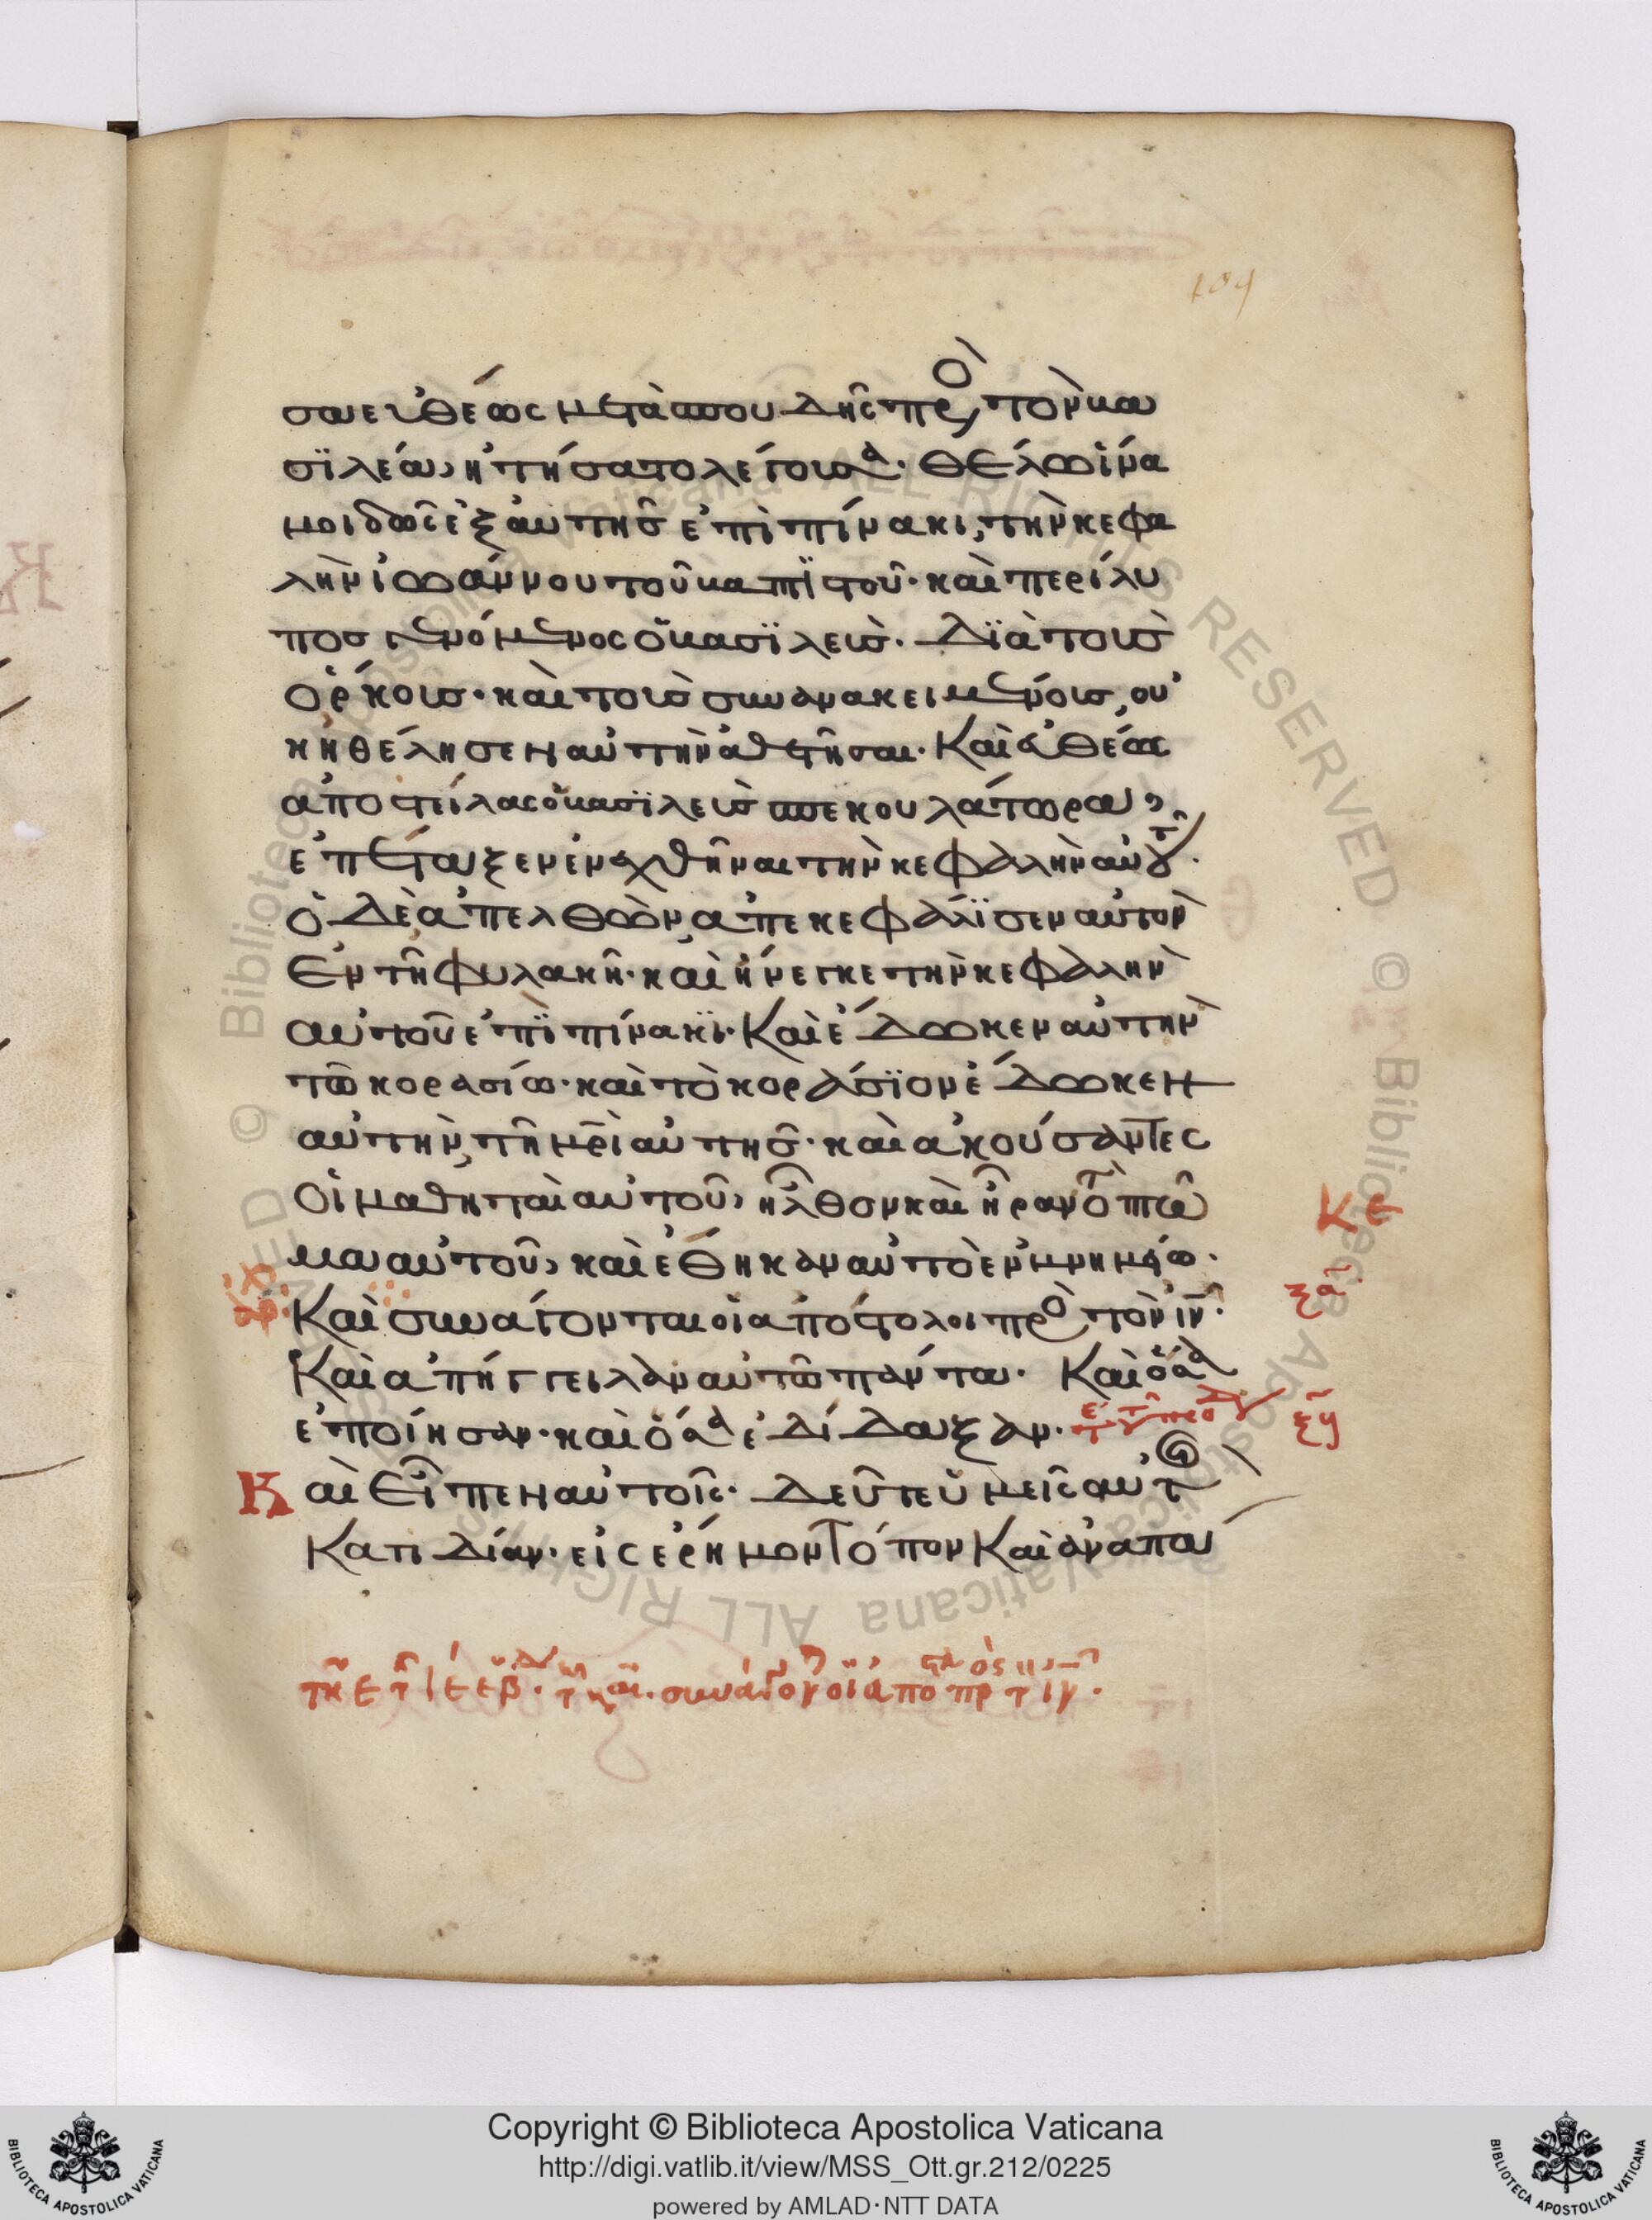 109
σα εὐθέως μετὰ σπουδῆς πρὸ τὸν βα
σϊλέα, ἠτήσατο λέγουσα· θέλω ἵνα
μοι δῶς ἐξαυτῆς ἐπὶ πίνακι, τὴν κεφα
λὴν ἰωάννου τοῦ βαπϊστοῦ· καὶ περίλυ
πος γενόμενος ὁ βασϊλεὺς· Δϊὰ τοὺς
ὅρκους· καὶ τοὺς συνανακειμένους, οὐ
κ ἠθέλησεν αὐτὴν ἀθετῆσαι· Καὶ εὐθέως
ἀποστείλας ὁ βασϊλεὺς σπεκουλάτωρα,
ἐπέταξεν ἐνεχθῆναι τὴν κεφαλὴν αὐτοῦ·
ὁ Δὲ ἀπελθὼν, ἀπεκεφάλϊσεν αὐτὸν
Ἐν τῆ φυλακῆ· καὶ ἤνεγκε τὴν κεφαλὴν
αὐτοῦ ἐπῒ πίνακϊ· Καὶ ἔδωκεν αὐτὴν
τῶ κορασίω· καὶ τὸ κοράσϊον ἔδωκεν
αὐτὴν, τῆ μρὶ αὐτῆς· καὶ ἀκούσαντες
Οἱ μαθηταὶ αὐτοῦ, ἦλθον καὶ ἦραν τὸ πτῶ
μα αὐτοῦ, καὶ ἔθηκαν αὐτὸ ἐν μνημείω·
Καὶ συνάγονται οἱ ἀπόστολοι πρὸ τὸν ἰν·
Καὶ ἀπήγγειλαν αὐτῶ πάντα· Καὶ ὅσα
ἐποίησαν· καὶ ὅσα ἐδίδαξαν·
Καὶ Εἶπεν αὐτοῖς· Δεῦτε ὑμεῖς αὐτοὶ
Κατιδίαν· εἰς ἔρημον τόπον Καὶ ἀναπαύ
Copyright © Biblioteca Apostolica Vaticana
http://digi.vatlib.it/view/MSS_Ott.gr.212/0225
powered by AMLAD·NTT DATA
BIBLIOTECA APOSTOLICA VATICANA
BIBLIOTECA APOSTOLICA VATICANA